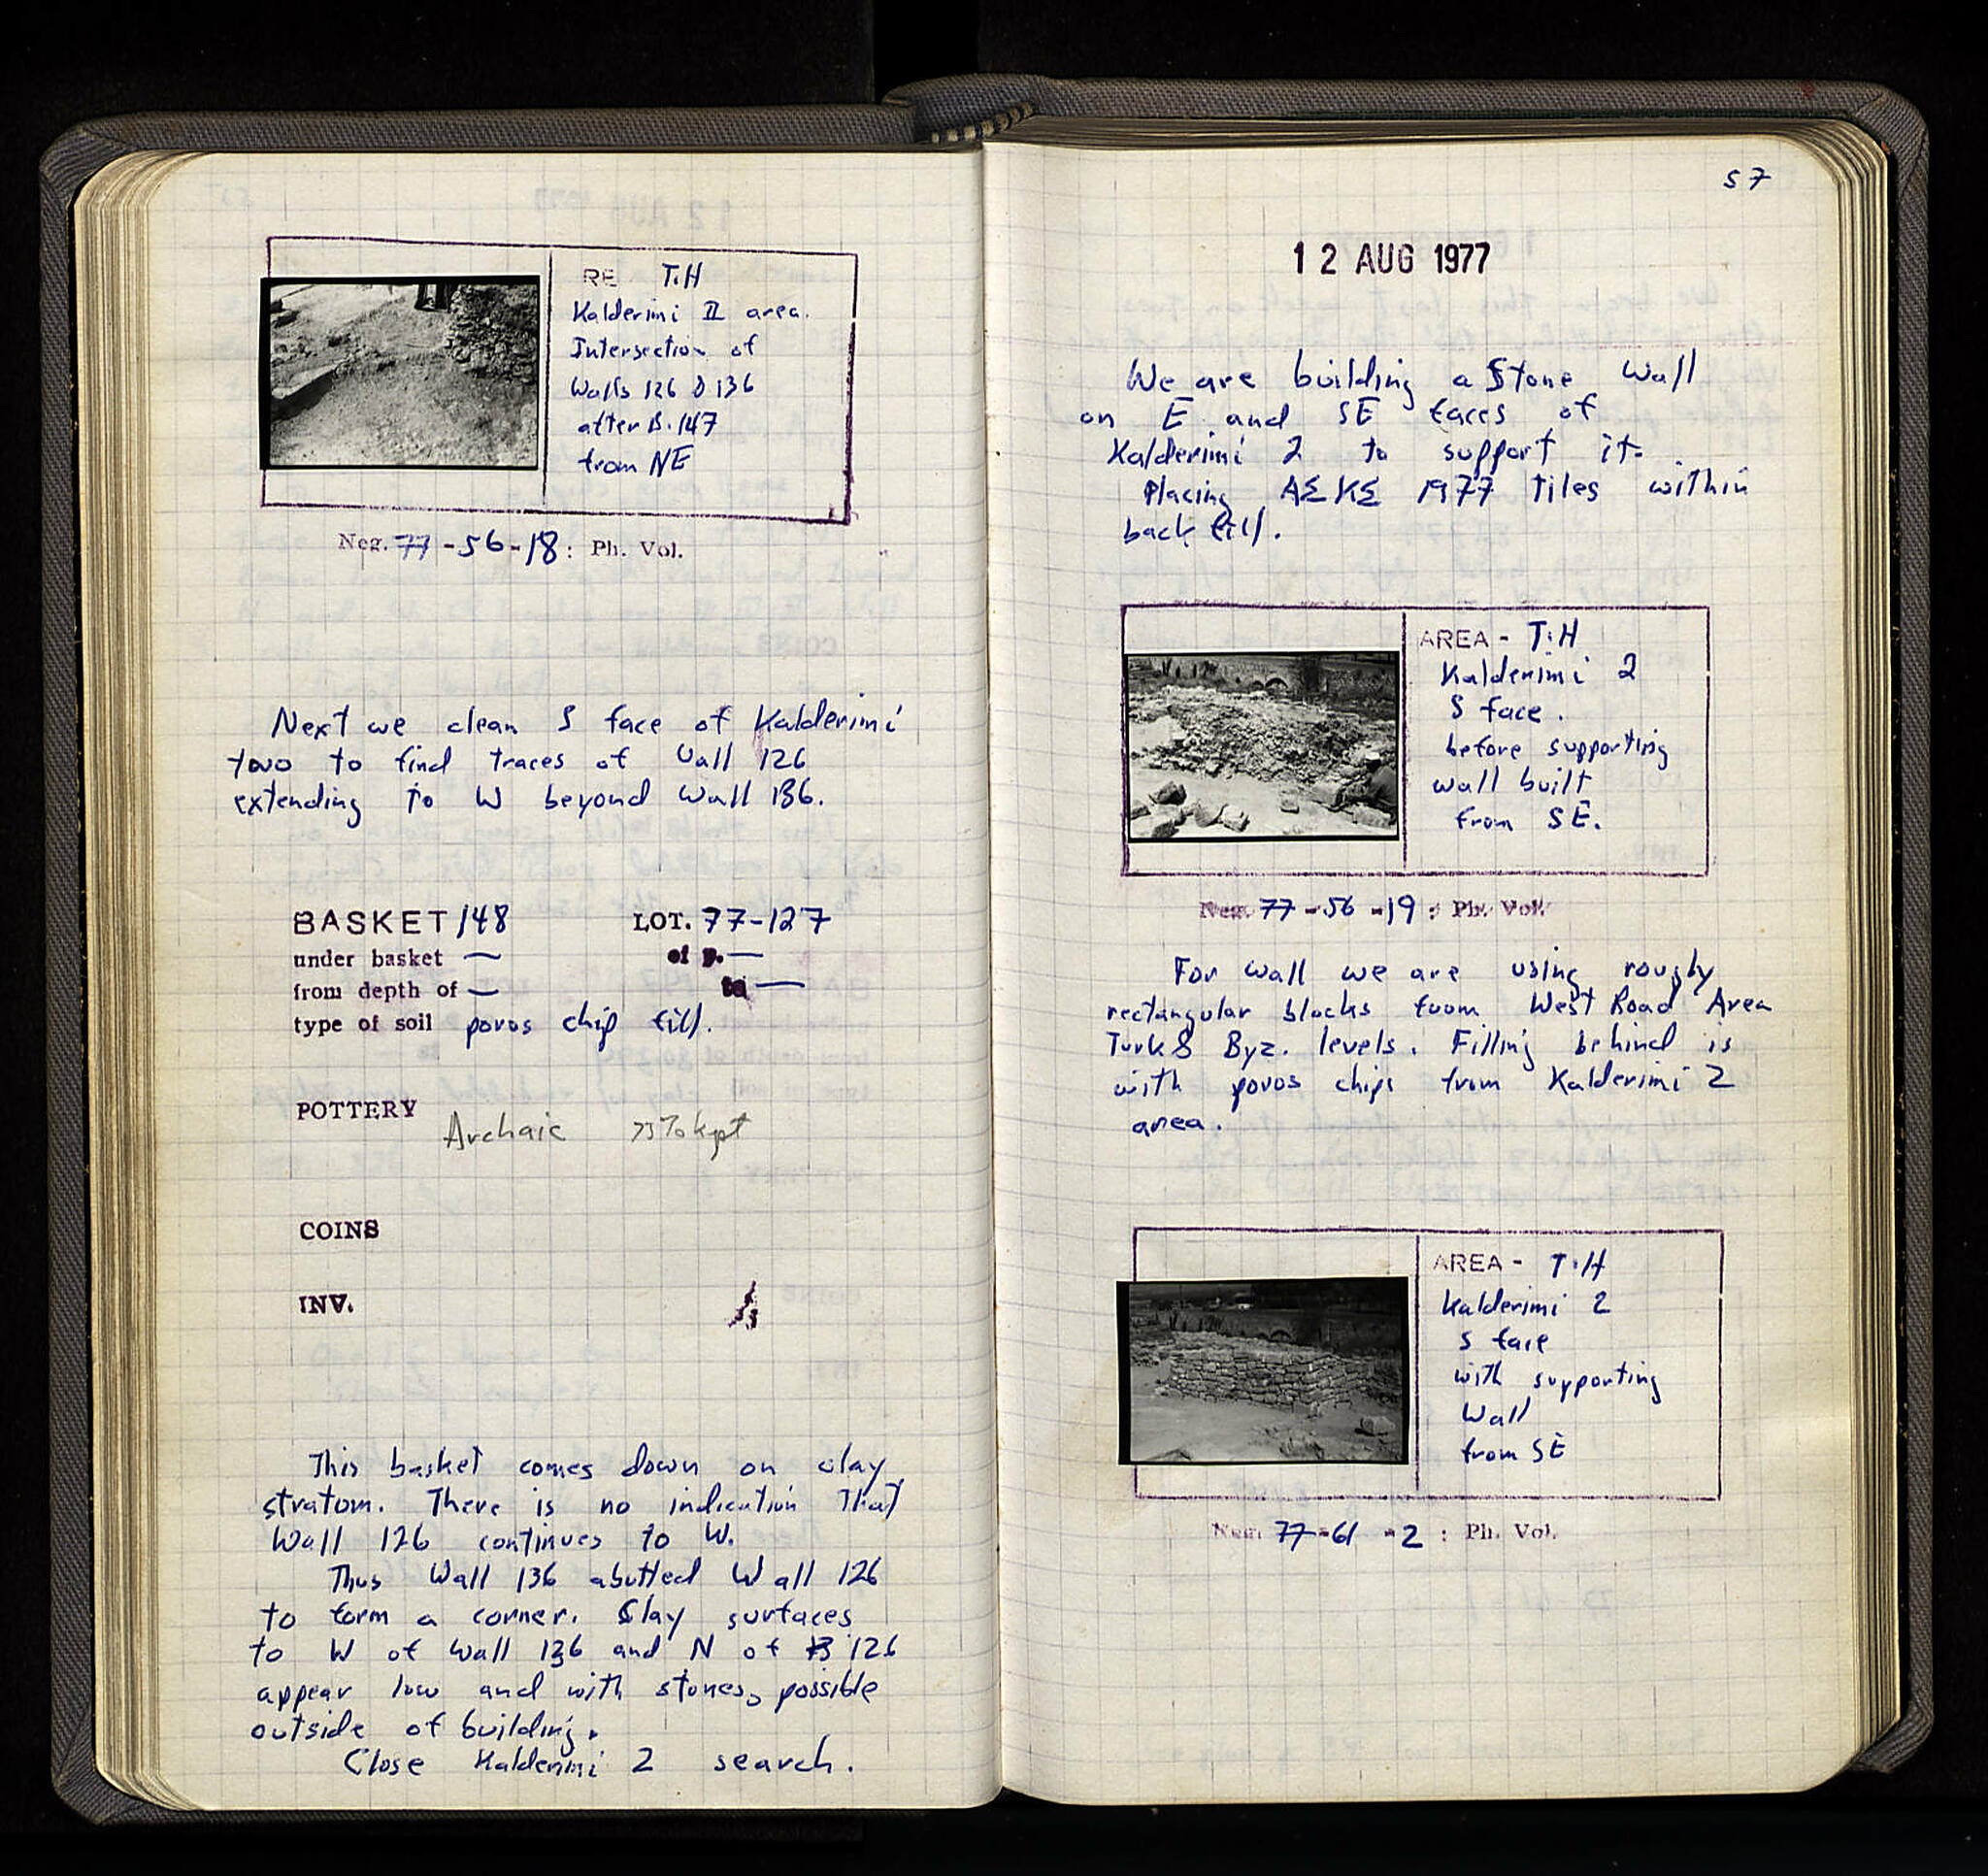 RE T.H
Kalderimi II area.
Intersection of
Walls 126 & 136
after B.147
from NE
Neg. 77-56-18: Ph. Vol.
Next we clean S face of Kalderimi
two to find traces of Wall 126
extending to W beyond Wall 136.
BASKET 148 LOT. 77-127
under basket — of p. —
from depth of — to —
type of soil poros chip fill.
POTTERY Archaic 75% kept
COINS
INV.
This basket comes down on clay
stratom. There is no indication that
Wall 126 continues to W.
Thus Wall 136 abutted Wall 126
to form a corner. Clay surfaces
to W of Wall 136 and N of 126
appear low and with stones, possible
outside of building.
Close Kalderimi 2 search.
57
12 AUG 1977
We are building a Stone Wall
on E and SE faces of
Kalderimi 2 to support it.
Placing ΑΣΚΣ 1977 tiles within
back fill.
AREA - T.H
Kalderimi 2
S face.
before supporting
wall built
from SE.
Neg. 77-56-19: Ph. Vol.
For wall we are using roughly
rectangular blocks from West Road Area
Turk & Byz. levels. Filling behind is
with poros chips from Kalderimi 2
area.
AREA - T.H
Kalderimi 2
S face
with supporting
Wall
from SE
Neg. 77-61-2: Ph. Vol.